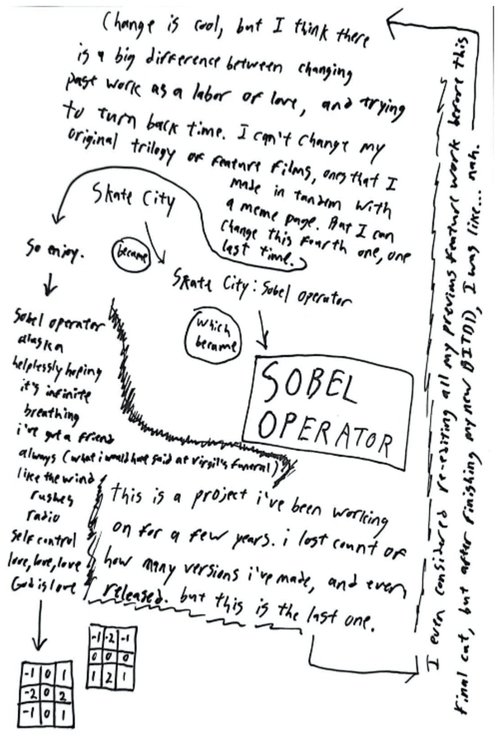 Change is cool, but I think there
is a big difference between changing
past work as a labor of love, and trying
to turn back time. I can't change my
original trilogy of feature films, ones that I
made in tandem with
a meme page. But I can
change this fourth one, one
last time.
Skate City
became
Skate City: Sobel operator
which
became
SOBEL
OPERATOR
So enjoy.
Sobel operator
alaska
helplessly hoping
it's infinite
breathing
i've got a friend
always (what i would have said at virgil's funeral)
like the wind
rushes
radio
self control
love, love, love
God is love
-1 0 1
-2 0 2
-1 0 1
-1 -2 -1
0 0 0
1 2 1
This is a project i've been working
on for a few years. i lost count of
how many versions i've made, and even
released. but this is the last one.
I even considered re-editing all my previous feature work before this
final cut, but after finishing my new I was like... nah.